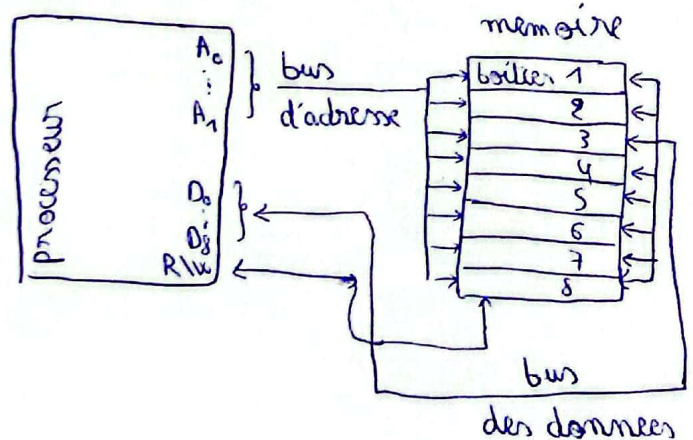 processeur
A₀
⋮
A₁
D₀
⋮
D₈
R\W
bus
d'adresse
memoire
boîtier 1
2
3
4
5
6
7
8
bus
des données